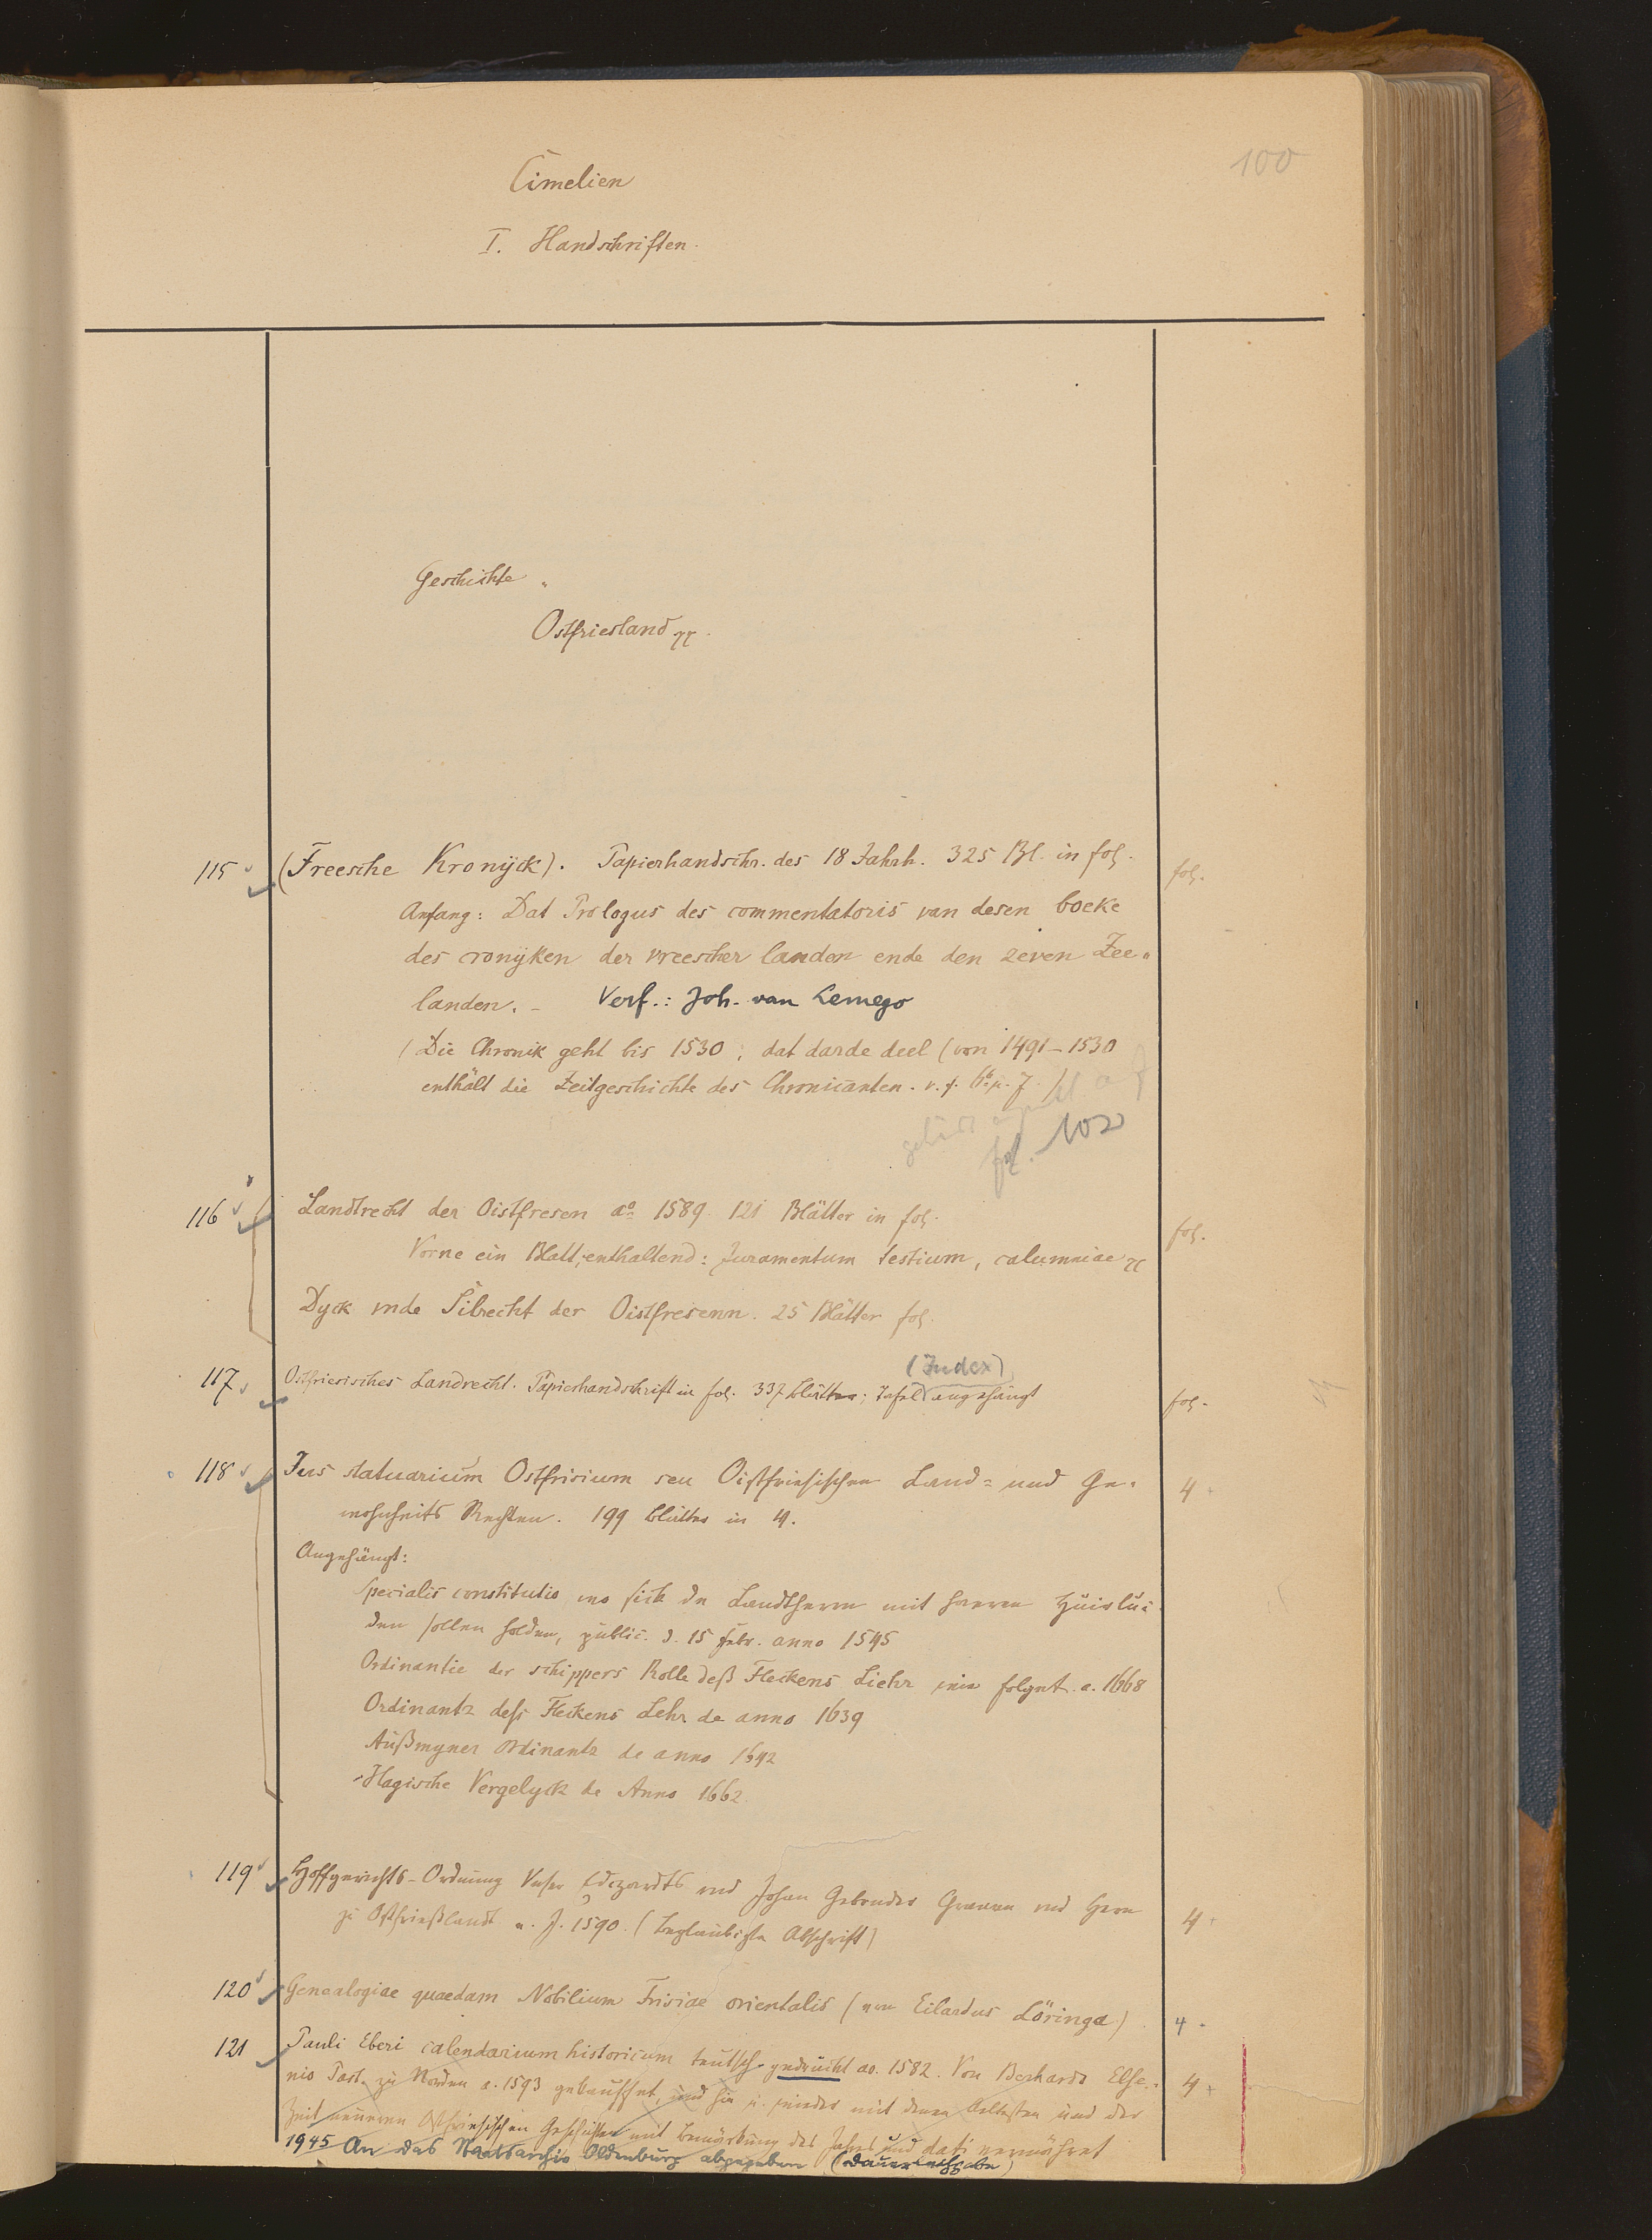 100
Cimelien
I. Handschriften.
Geschichte.
Ostfriesland
115 (Freesche Kronijck). Papierhandschr. des 18 Jahrh. 325 Bl. in fol. fol.
Anfang: Dat Prologus des commentatoris van desen boeke
des cronijken der vreescher landen ende den zeven Zee-
landen. – Verf.: Joh. van Lemego
(Die Chronik geht bis 1530; dat darde deel (von 1491–1530
enthält die Zeitgeschichte des Chronicanten.
gehört auf
fol. 102
116 Landtrecht der Oistfresen ao 1589 121 Blätter in fol. fol.
Vorne ein Blatt, enthaltend: Juramentum testium, calumniae
Dyck vnde Silrecht der Oistfresenn. 25 Blätter fol.
(Index)
117 Ostfriesisches Landrecht. Papierhandschrift in fol. 337 Blätter; Tafel angehängt fol.
118 Jus statuarium Ostfrisium seu Oistfriesischen Land= und Ge- 4
wohnheits Rechten. 199 Blätter in 4.
Angehängt:
Specialis constitutio wo sick de Landtherrn mit haeren Huislü-
den sollen holden, public. d. 15 Febr. anno 1545
Ordinantie der schippers Rolle deß Fleckens Liehr folget a. 1668
Ordinantz deß Fleckens Lehr de anno 1639
Außmyner Ordinantz de anno 1642
Hagische Vergelyck de Anno 1662.
119 Hoffgerichts-Ordnung Vnser Edezardts vnd Johan Gebrueder Grauen vnd Hern 4
zu Ostfrießlandt v. J. 1590. (beglaubigte Abschrift)
120 Genealogiae quaedam Nobilium Frisiae orientalis (von Eilardus Löringa) 4
121 Pauli Eberi calendarium historicum teutsch gedruckt ao. 1582. Von Berhardo Else- 4
nio Past. zu Norden a. 1593 und hin u. wieder mit denen ältesten und der
Zeit neueren Ostfriesischen Geschichten mit Bemerkung des Jahres und dati vermehret
1945 An das Staatsarchiv Oldenburg abgegeben (Dauerleihgabe)